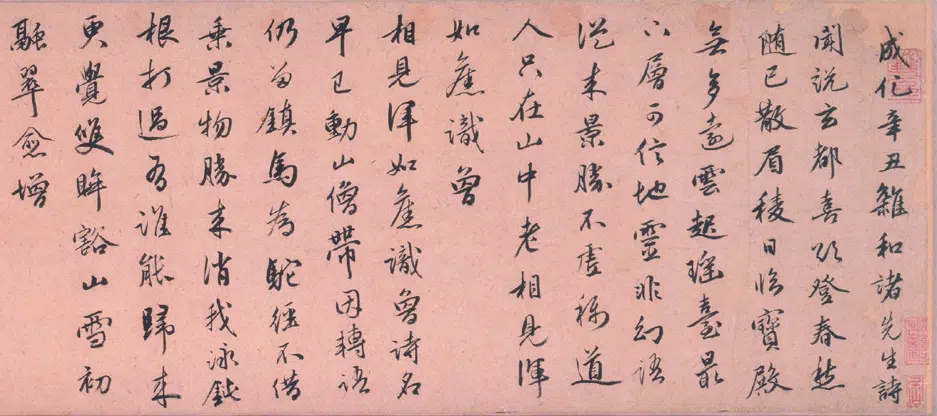 成化辛丑雜和諸先生詩
聞說玄都喜欲登春愁
隨已散眉稜日臨寶殿
無多遠雲起瑤臺最
下層可信地靈非幻語
從來景勝不虛稱道
人只在山中老相見渾
如舊識曾
相見渾如舊識曾詩名
早已動山僧帶因轉語
仍留鎮馬為馱經不借
乘景物勝來消我詠鈍
根打過有誰能歸來
更覺雙眸豁山雪初
融翠愈增